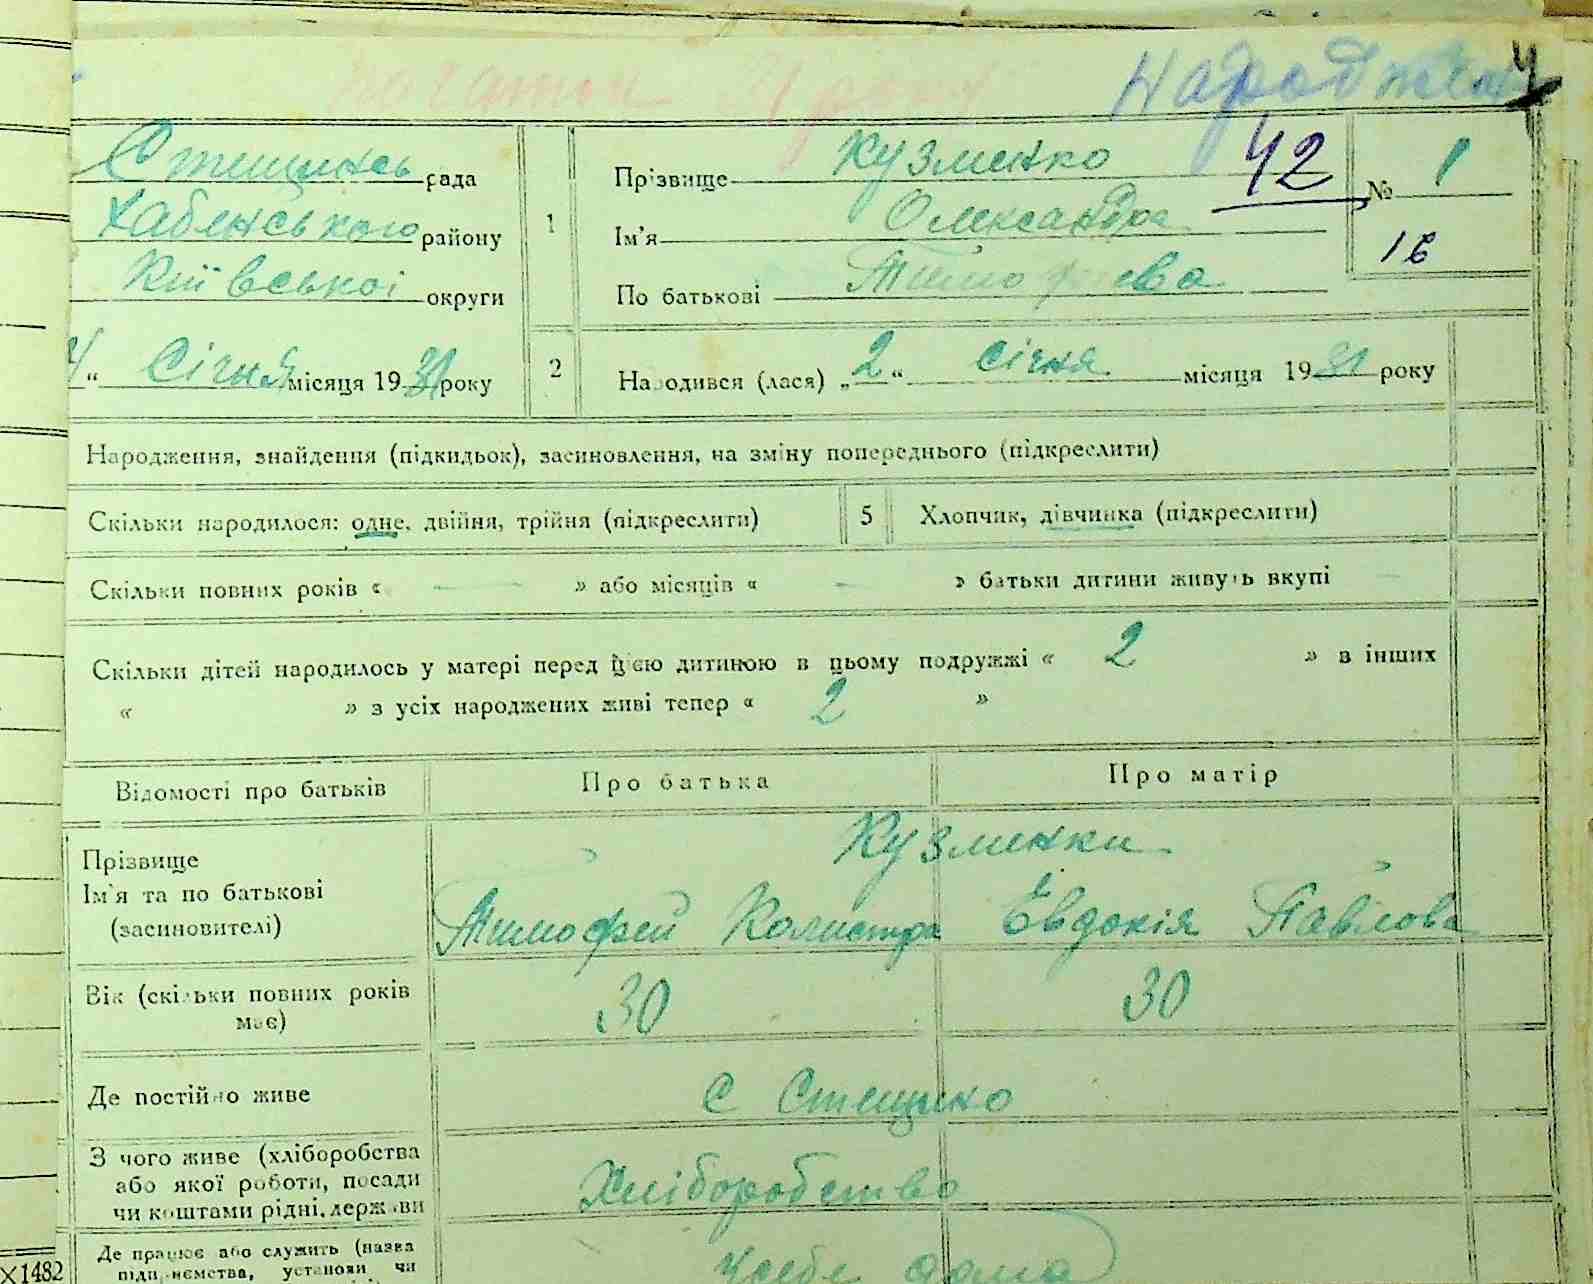 Народжен
Стещинсь рада
Хабенського району
Київської округи
1
Прізвище Кузменко
Ім'я Олександра
По батькові Тимофеева
42
№ 1
16
4 " Січня місяця 1931 року
2
Народився (лася) „ 2 " січня місяця 1931 року
Народження, знайдення (підкидьок), засиновлення, на зміну попереднього (підкреслити)
Скільки народилося: одне, двійня, трійня (підкреслити)
5
Хлопчик, дівчинка (підкреслити)
Скільки повних років « — » або місяців « — » батьки дитини живуть вкупі
Скільки дітей народилось у матері перед цією дитиною в цьому подружжі « 2 » в інших
« » з усіх народжених живі тепер « 2 »
Відомості про батьків
Про батька
Про матір
Прізвище
Ім'я та по батькові
(засиновителі)
Кузменки
Тимофей Калистра Евдокія Павлова
Вік (скільки повних років
має)
30
30
Де постійно живе
С Стещино
З чого живе (хліборобства
або якої роботи, посади
чи коштами рідні, держави
Хліборобство
Де працює або служить (назва
підприємства, установи чи
У себе дома
×1482